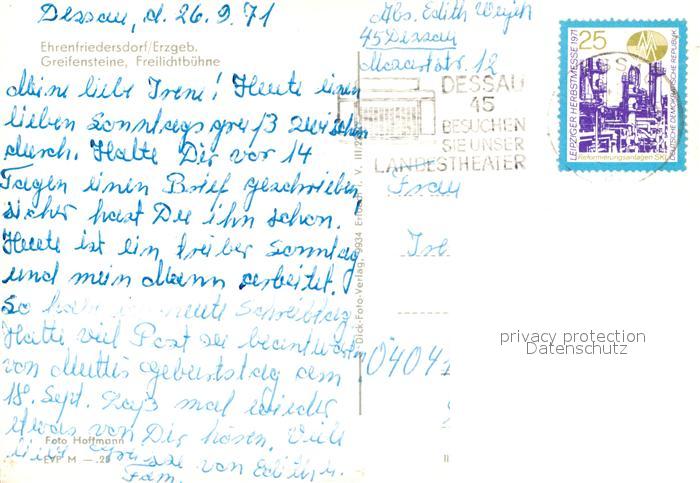 Dessau, d. 26.9.71
Ehrenfriedersdorf/Erzgeb.
Greifensteine, Freilichtbühne
Meine liebe Irene! Heute einen
lieben Sonntagsgruß zwischen
durch. Hatte Dir vor 14
Tagen einen Brief geschrieben,
sicher hast Du ihn schon.
Heute ist ein trüber Sonntag
und mein Mann arbeitet.
So habe ich heute Schreibtag
Hatte viel Post zu beantworten
von Muttis Geburtstag am
18. Sept. Laß mal wieder
etwas von Dir hören. Viele
liebe Grüsse von Edith u.
Fam.
Foto Hoffmann
EVP M —.20
Dick-Foto-Verlag, 9934
Abs. Edith
45 Dessau
Mozartstr. 12
DESSAU
45
BESUCHEN
SIE UNSER
LANDESTHEATER
Frau
Ire
0404
25
LEIPZIGER HERBSTMESSE 1971
DEUTSCHE DEMOKRATISCHE REPUBLIK
Reformierungsanlagen SKL
privacy protection
Datenschutz